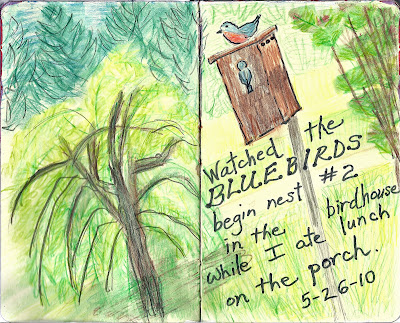 Watched the
BLUEBIRDS
begin nest #2
in the birdhouse
while I ate lunch
on the porch.
5-26-10